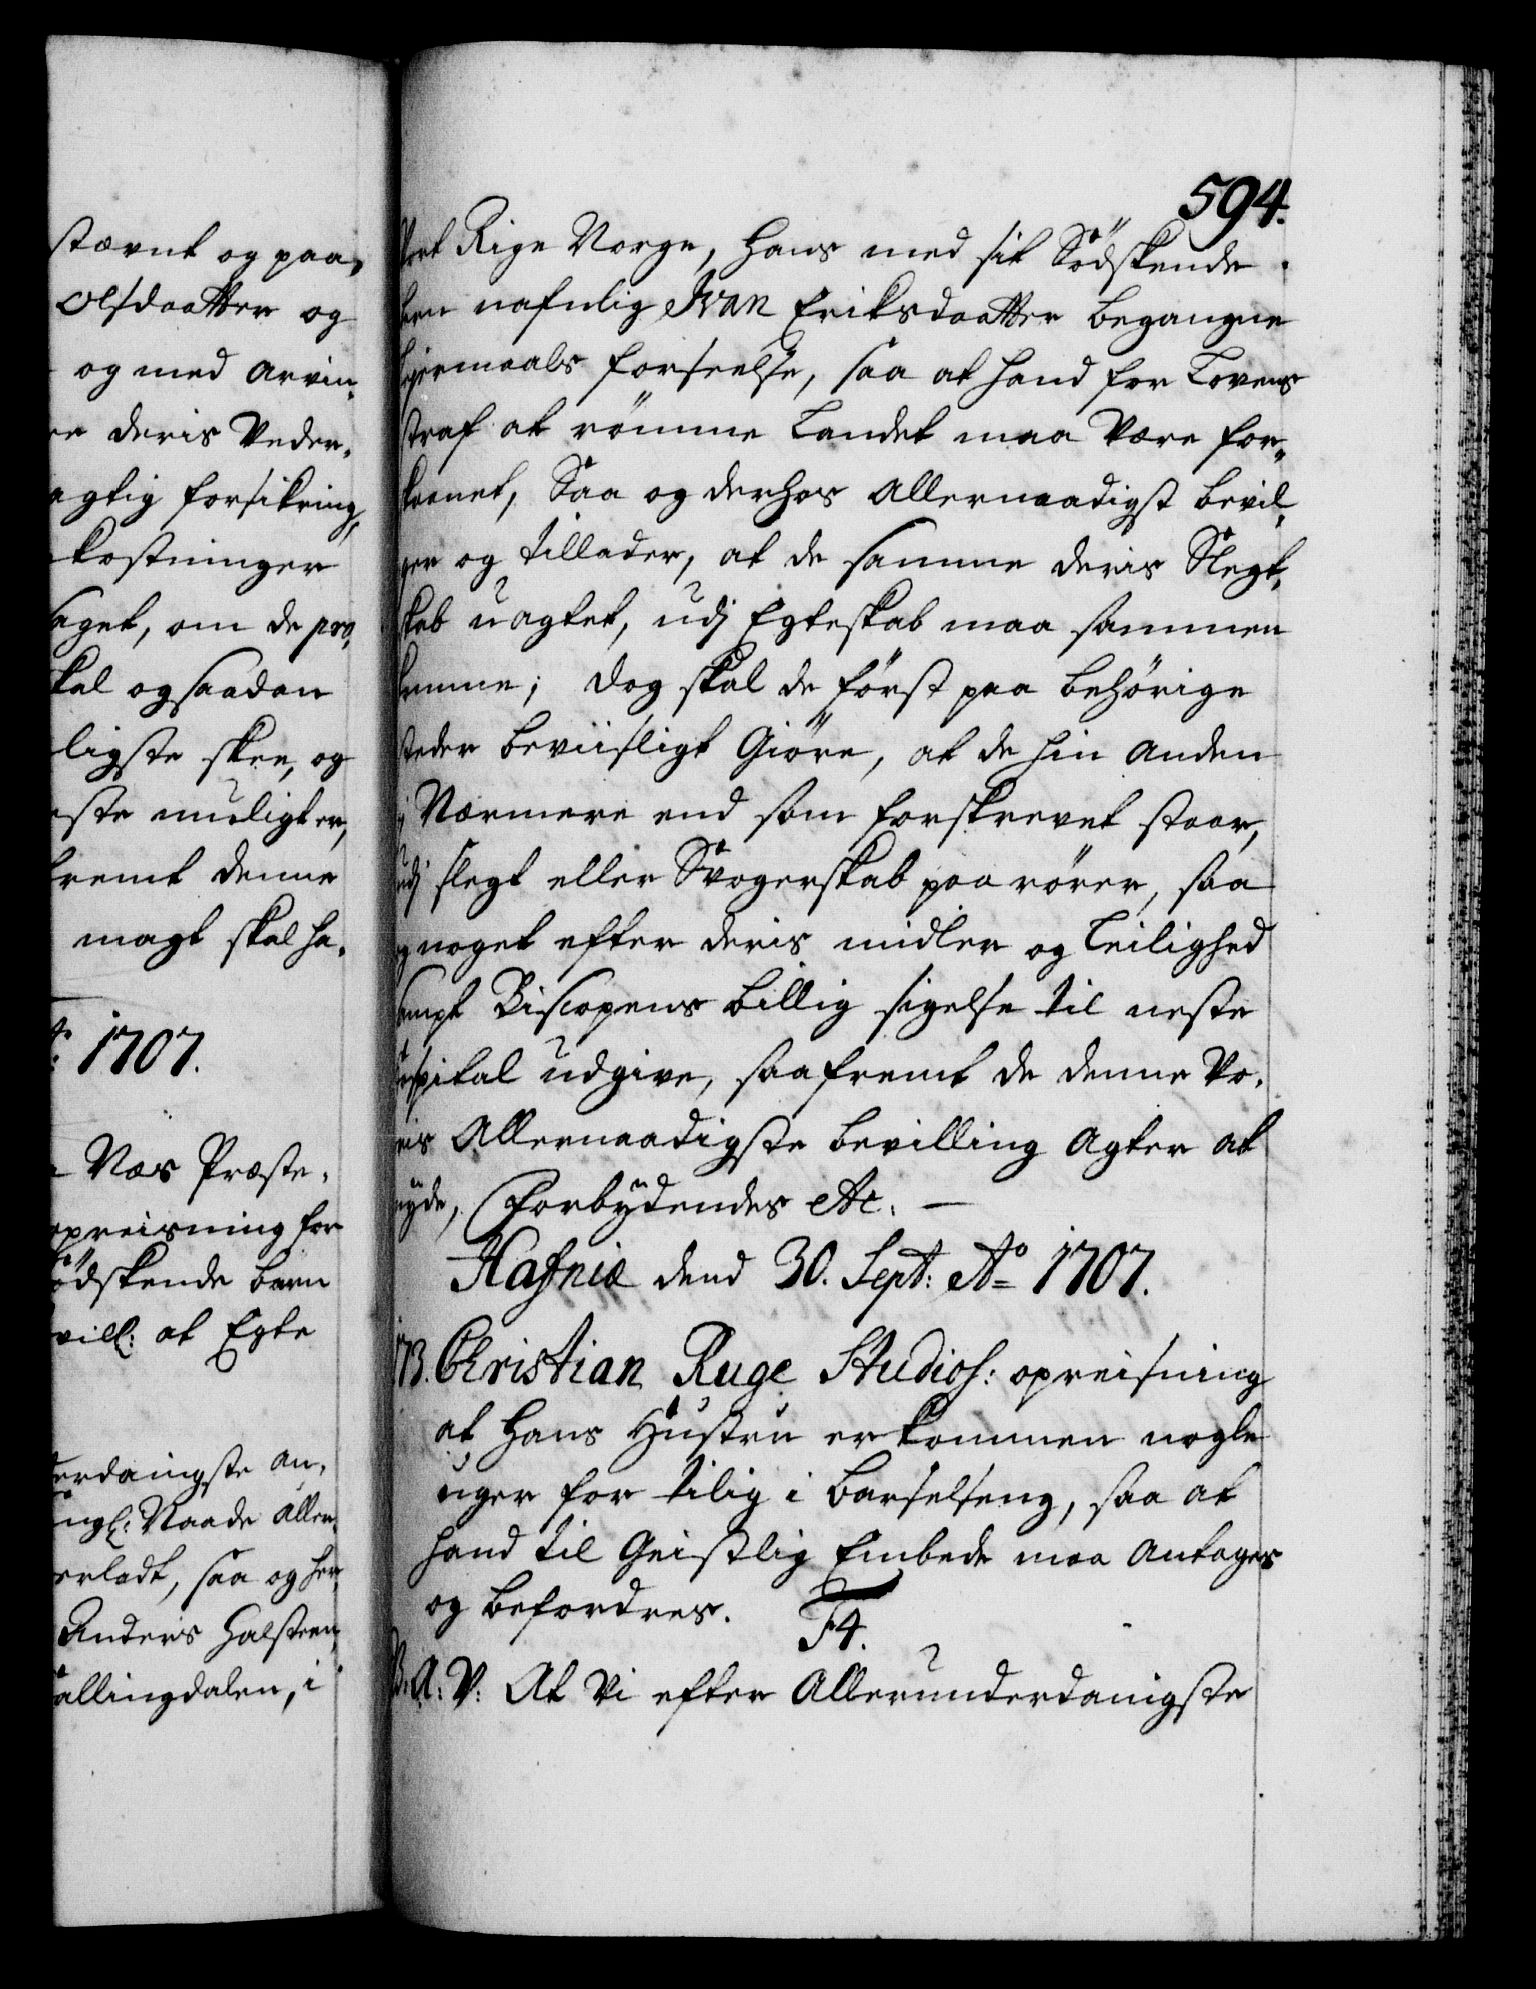 stævnt og paa,
Olsdaatter og
og med arvin,
deris Veder,
agtig forsikring,
kostninger
om de pro,
skal og saadan
ligste skee, og
muligt er,
fremt denne
magt skal ha,
1707.
Næs Præste,
opreisning for
Sødskende barn
vill: at Egte
an,
Naade aller,
saa og her
Anders Halsteen,
Hallingdalen, i
594.
Vort Rige Norge, hans med sit Södskende
barn nafnlig Ivan Eriksdaatter begangne
leiermaals forseelse, saa at hand for Lovens
straf at römme Landet maa være for,,
skaanet, Saa og derhos allernaadigst bevil,
ger og tillader, at de samme deris Slegt,
skab uagtet, udj Egteskab maa sammen
komme; dog skal de först paa behörige
steder beviisligt Giöre, at de hin anden
ej Nærmere end som forskrevet staar,
udj slegt eller Svogerskab paarörer, saa
og noget efter deris midler og Leilighed
sampt Biscopens billig sigelse til neste
Hospital udgive, saafremt de denne Vo,
ris Allernaadigste bevilling agter at
nyde, Forbydendes etc. —
Hafniæ dend 30. Sept: Ao 1707.
173. Christian Ruge Studios: opreisning
at hans Hustru er kommen nogle
uger for tilig i barselseng, saa at
hand til Geistlig Embede maa antages
og befordres. F4.
B: A: V: At vi efter Allerunderdanigste